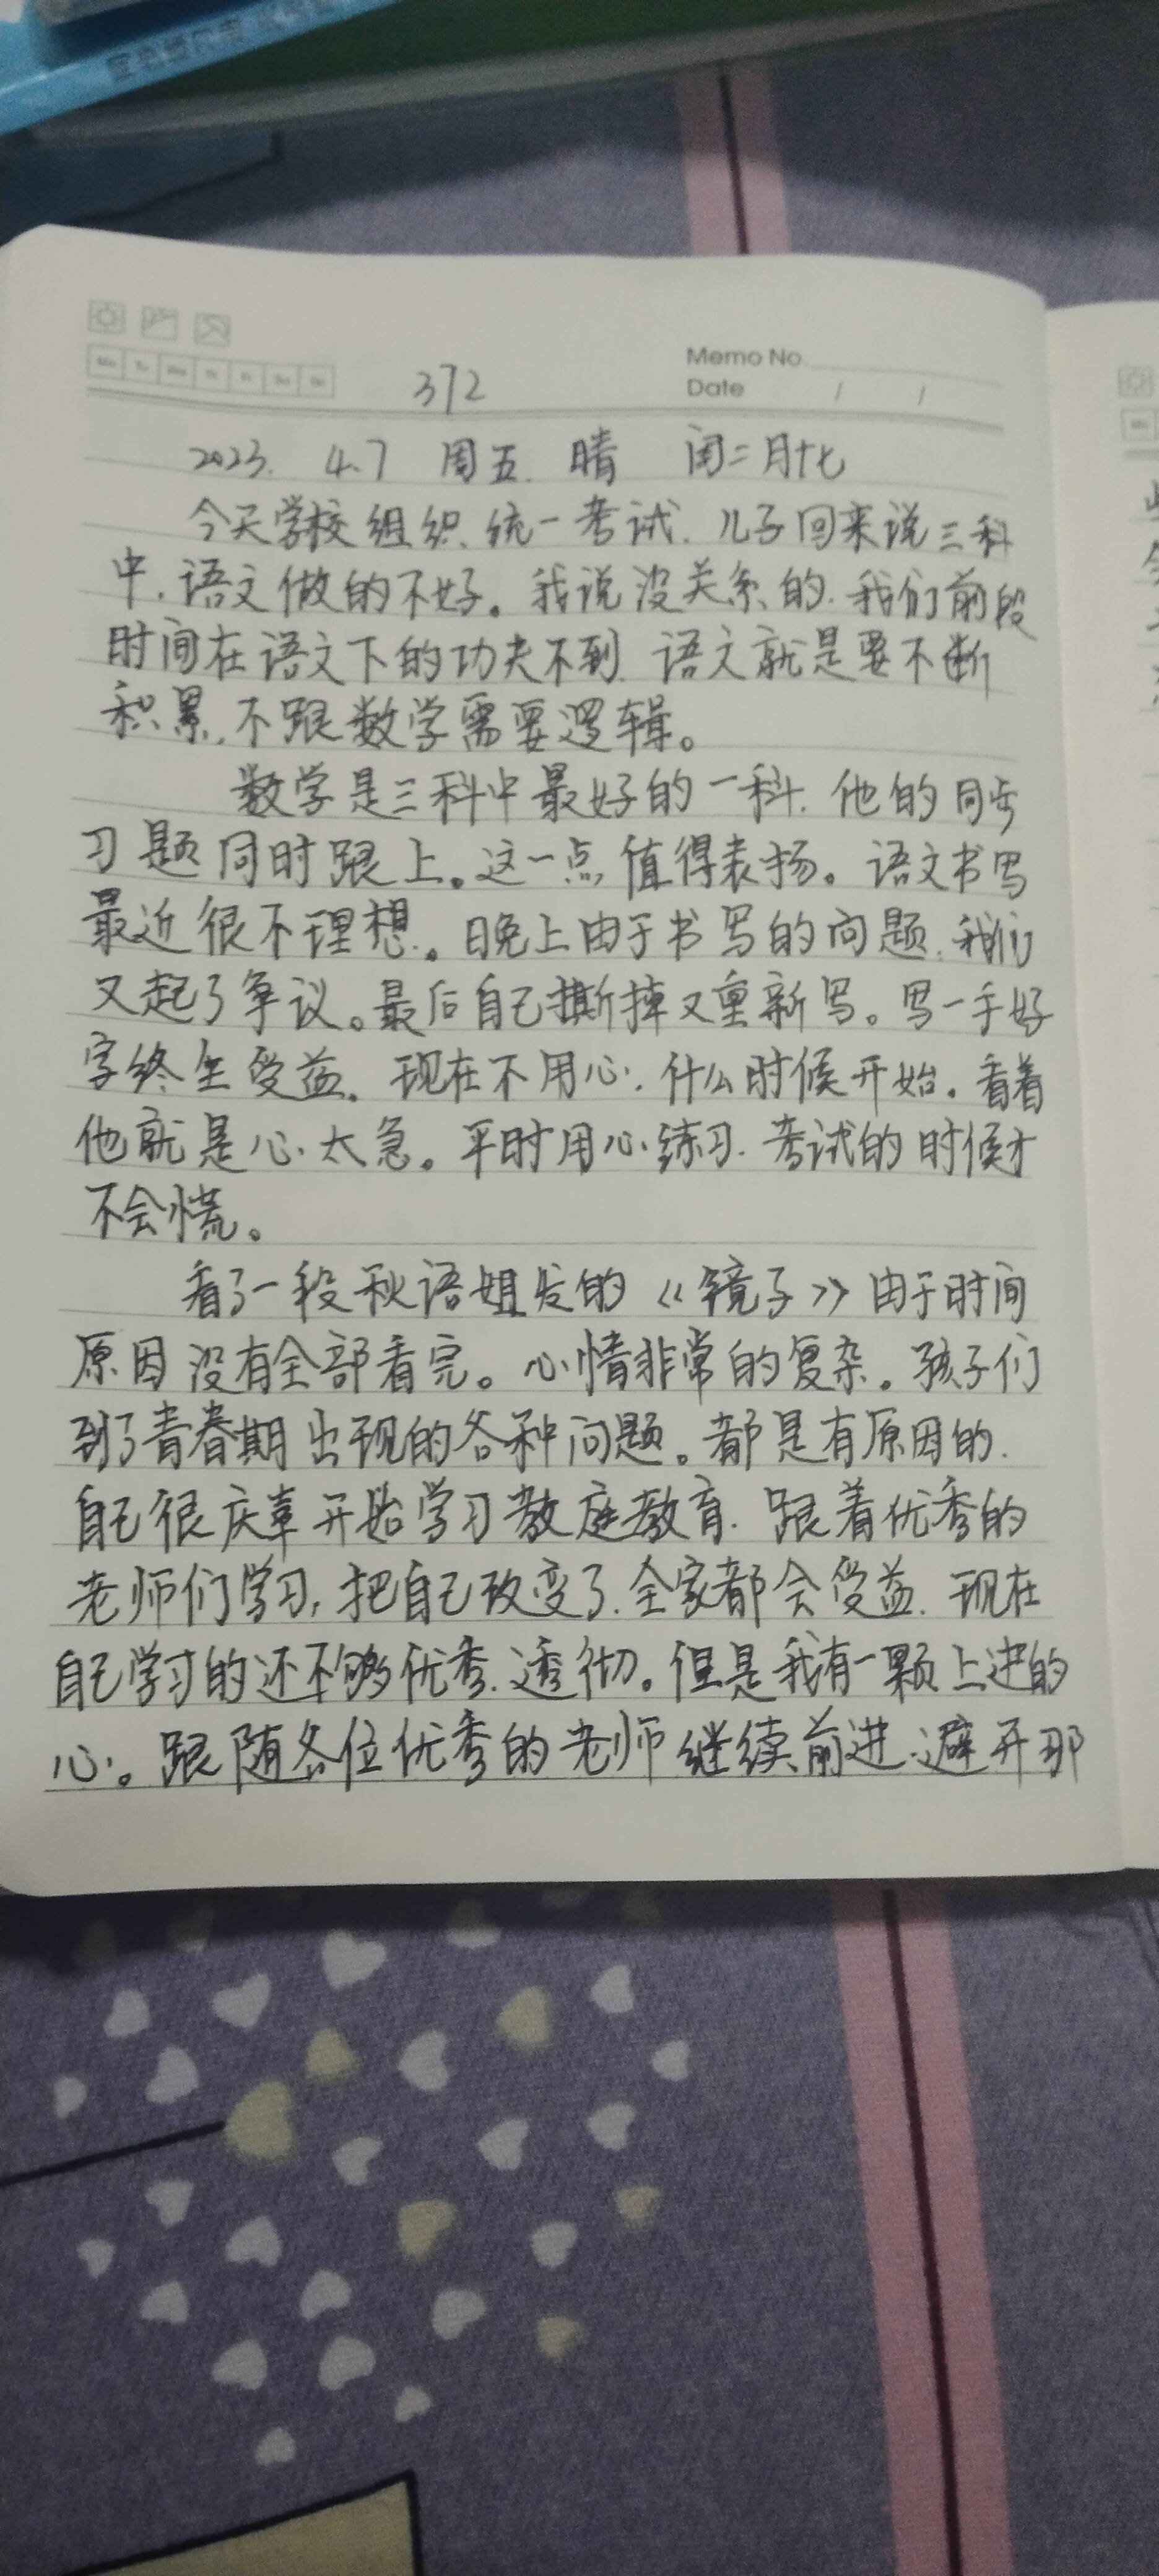 Memo No.
Mo Tu We Th Fr Sa Su
372
Date / /
2023. 4.7 周五. 晴 闰二月十七
今天学校组织统一考试. 儿子回来说三科
中.语文做的不好。我说没关系的.我们前段
时间在语文下的功夫不到.语文就是要不断
积累.不跟数学需要逻辑。
数学是三科中最好的一科.他的同步
习题同时跟上。这一点值得表扬。语文书写
最近很不理想.。晚上由于书写的问题.我们
又起了争议。最后自己撕掉又重新写。写一手好
字终生受益. 现在不用心.什么时候开始。看着
他就是心太急。平时用心练习.考试的时候才
不会慌。
看了一段秋语姐发的《镜子》由于时间
原因没有全部看完。心情非常的复杂。孩子们
到了青春期出现的各种问题。都是有原因的.
自己很庆幸开始学习教庭教育.跟着优秀的
老师们学习,把自己改变了.全家都会受益.现在
自己学习的还不够优秀.透彻。但是我有一颗上进的
心。跟随各位优秀的老师继续前进.避开那